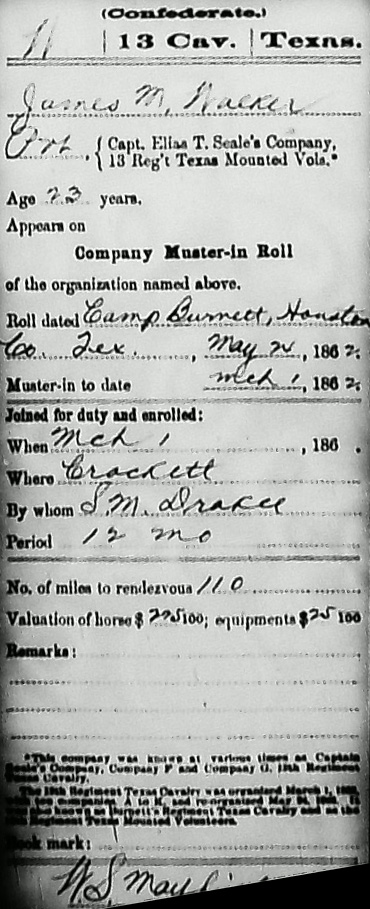 (Confederate.)
W | 13 Cav. | Texas.
James M. Walker
Pvt., { Capt. Elias T. Seale's Company,
13 Reg't Texas Mounted Vols.*
Age 23 years.
Appears on
Company Muster-in Roll
of the organization named above.
Roll dated Camp Burnett, Houston
Co. Tex., May 24, 1862.
Muster-in to date Mch 1, 1862.
Joined for duty and enrolled:
When Mch 1, 186 .
Where Crockett
By whom S. M. Drake
Period 12 mo
No. of miles to rendezvous 110
Valuation of horse $ 225 100; equipments $ 25 100
Remarks:
*This company was known at various times as Captain
Seale's Company, Company F and Company G, 13th Regiment
Texas Cavalry.
The 13th Regiment Texas Cavalry was organized March 1, 1862,
with ten companies, A to K, and re-organized May 24, 1862. It
was also known as Burnett's Regiment Texas Cavalry and as the
13th Regiment Texas Mounted Volunteers.
Book mark:
W. S.